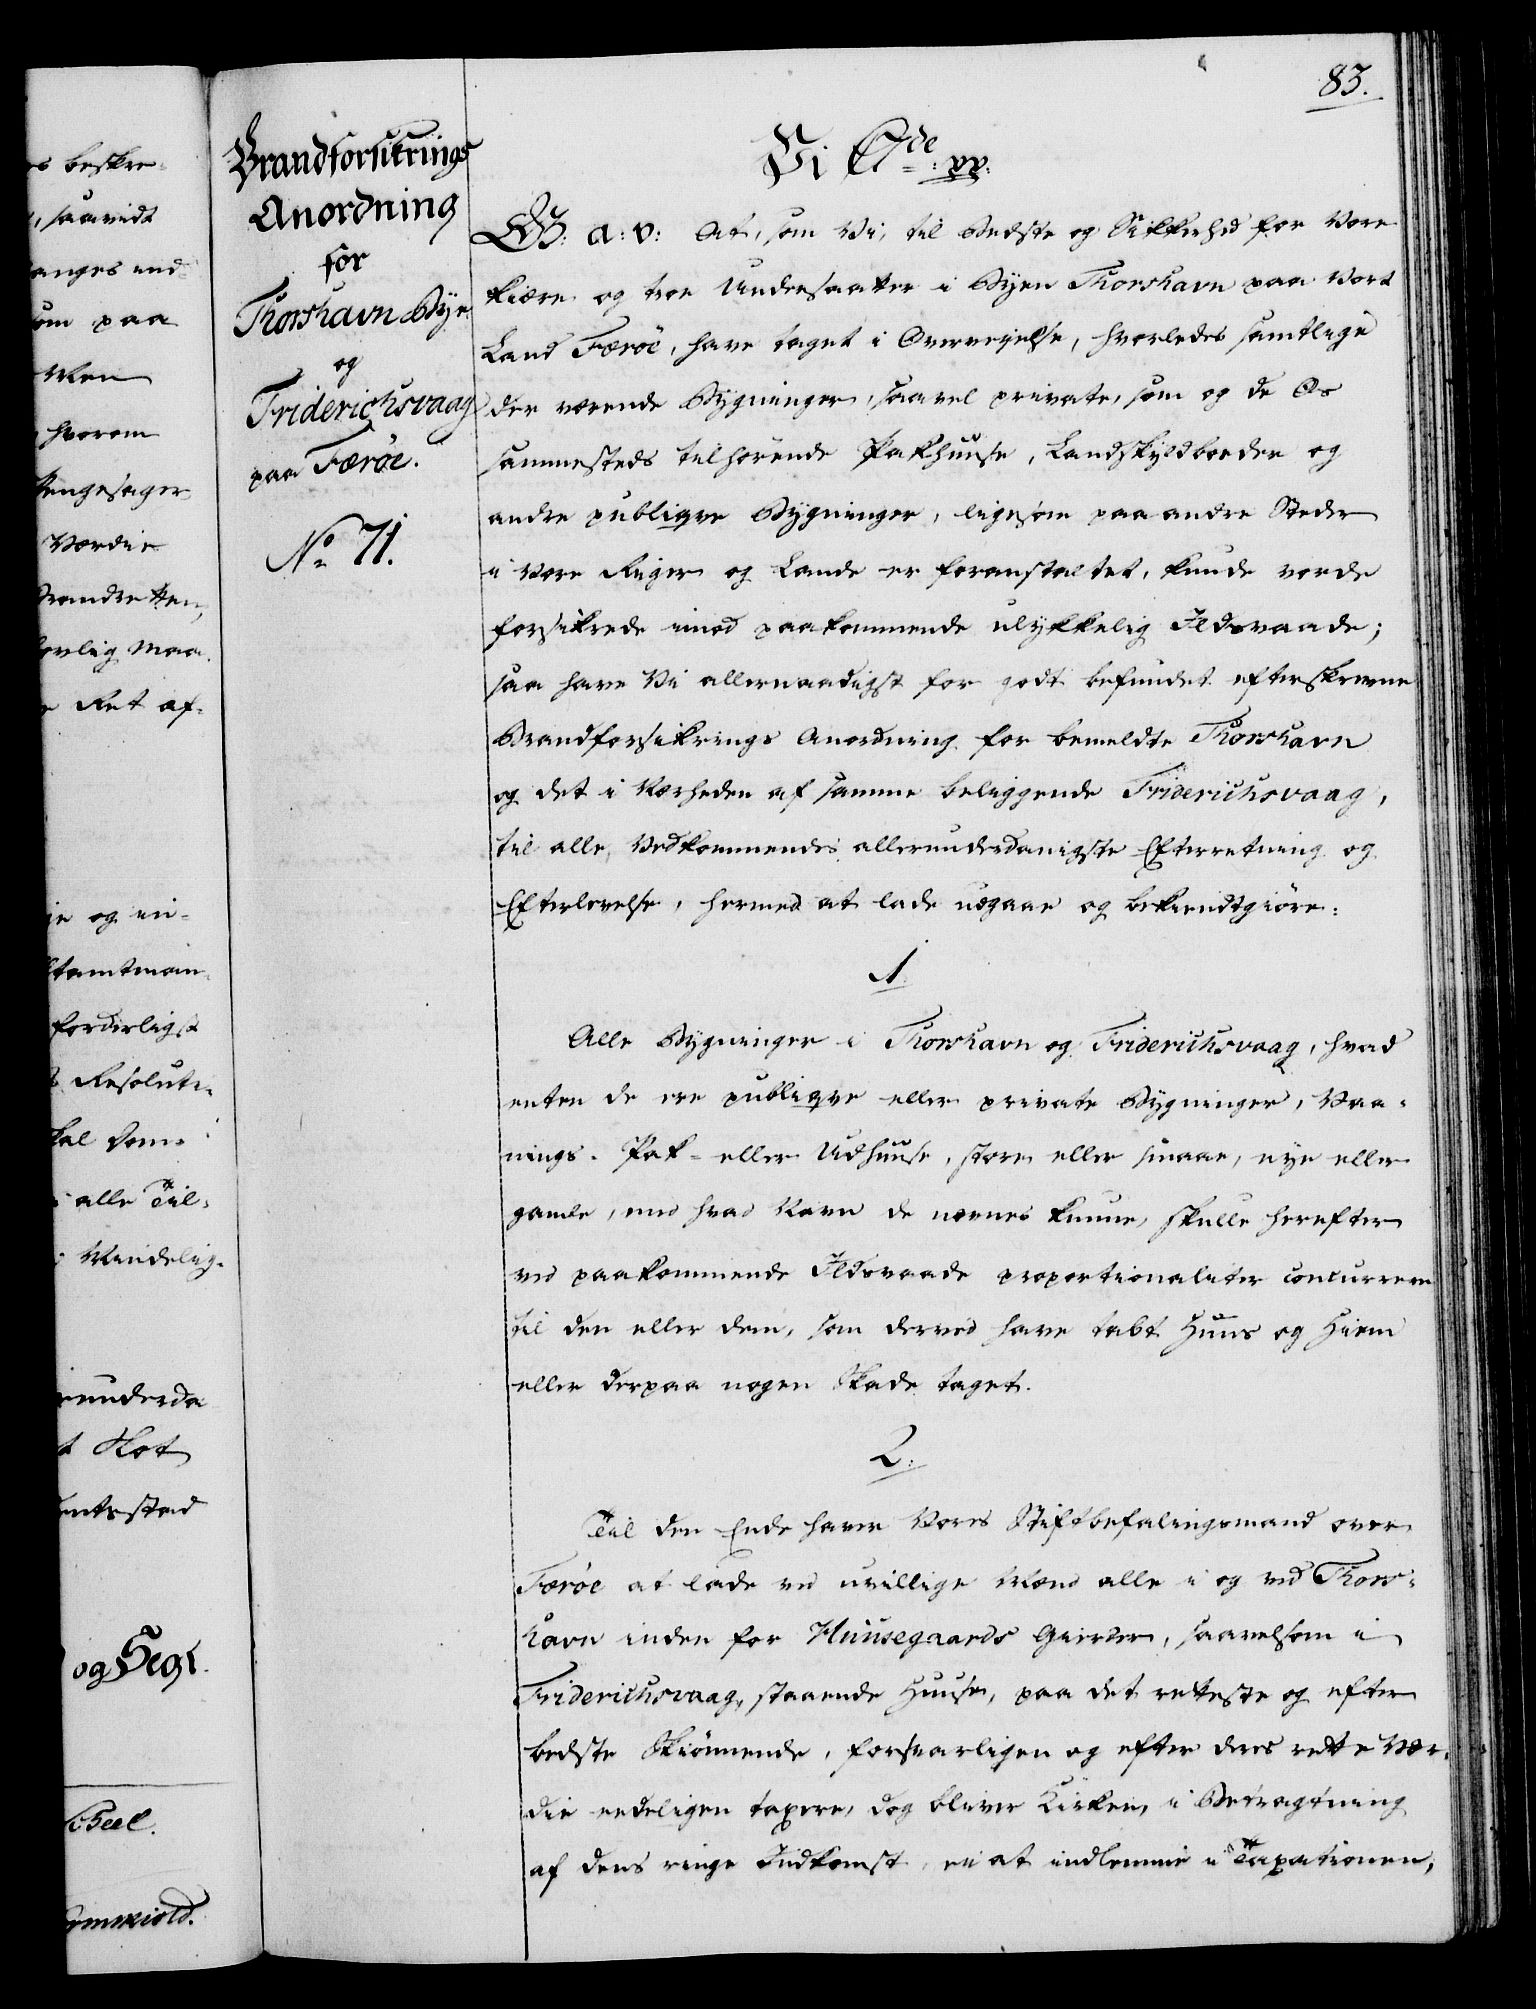 83.
Brandforsikrings
Anordning
for
Thorshavn Bye
og
Friderichsvaag
paa Færöe.
No 71.
Vi C 7de: pp:
G: a: v: At, som Vi, til Bedste og Sikkerhed for Vore
kiære og troe Undersaatter i Byen Thorshavn paa Vort
Land Færöe, have taget i Overveyelse, hvorledes samtlige
der værende Bygninger, saavel private, som og de Os
sammesteds tilhörende Pakhuuse, Landskyldboeder og
andre publiqve Bygninger, ligesom paa andre Steder
i Vore Riger og Lande er foranstaltet, kunde vorde
forsikrede imod paakommende ulykkelig Ildsvaade;
saa have Vi allernaadigst for godt befundet efterskrevne
Brandforsikrings Anordning for bemeldte Thorshavn
og det i Nærheden af samme beliggende Friderichsvaag,
til alle Vedkommendes allerunderdanigste Efterretning og
Efterlevelse, hermed at lade udgaae og bekiendtgiöre:
1.
Alle Bygninger i Thorshavn og Friderichsvaag, hvad
enten de ere publiqve eller private Bygninger, Vaa-
nings- Pak- eller Udhuuse, store eller smaae, nye eller
gamle, med hvad Navn de nævnes kunne, skulle herefter
ved paakommende Ildsvaade proportionaliter concurrere
til den eller dem, som derved have tabt Huus og Hiem
eller derpaa nogen Skade taget.
2.
Til den Ende haver Vores Stiftbefalingsmand over
Færöe at lade ved uvillige Mænd alle i og ved Thors-
havn inden for Huusegaards Gierder, saavelsom i
Friderichsvaag, staaende Huuse, paa det retteste og efter
bedste Skiönnende, forsvarligen og efter deres rette Vær-
die eedeligen taxere, dog bliver Kirken, i Betragtning
af dens ringe Indkomst, ei at indlemme i Taxationen,
es beskre-
, saavidt
langes ind-
som paa
Men
hvorom
Pengesager
Værdie
lovlig Maa-
Ret af-
ie og en-
Stamtman-
forderligst
Resoluti-
kal Dom-
alle Til-
Mindelig-
erunderda
t Slot
entsstad
og Segl.
Scheel.